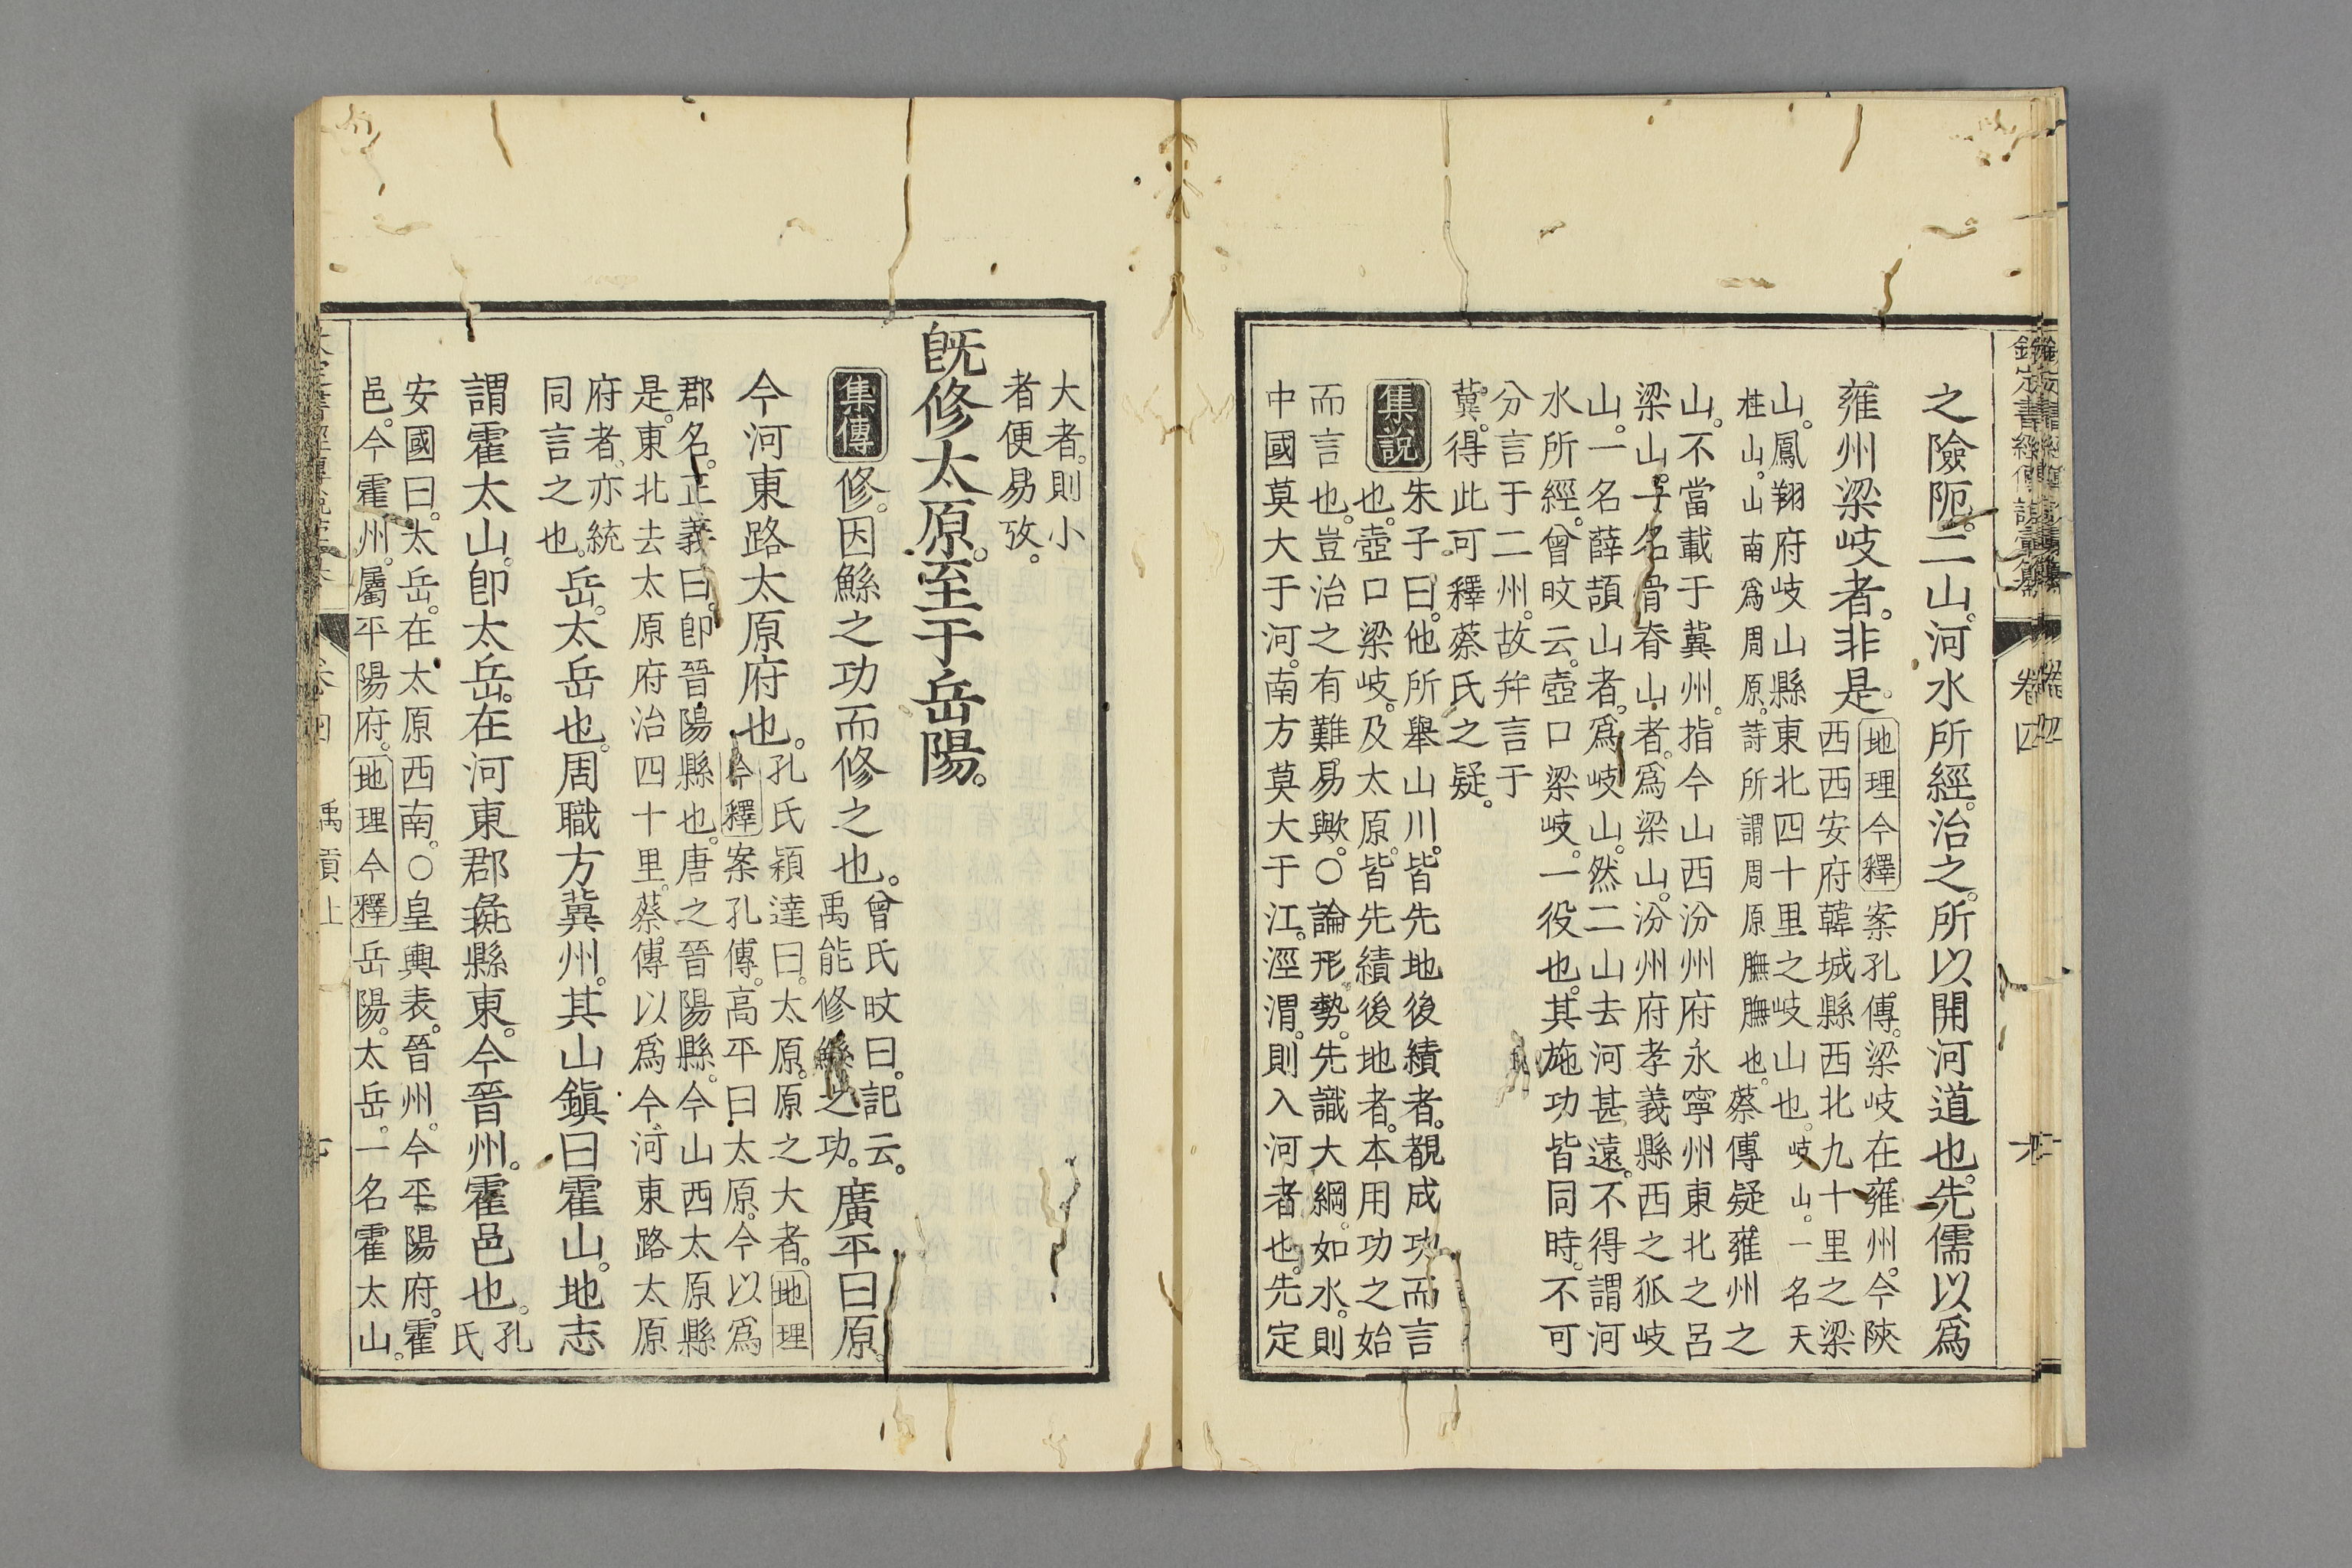 之險阨。二山。河水所經。治之。所以開河道也。先儒以爲
雍州梁岐者。非是。
地理今釋 案孔傳。梁岐在雍州。今陝
西西安府韓城縣西北九十里之梁
山。鳳翔府岐山縣東北四十里之岐山也。岐山。一名天
柱山。山南爲周原。詩所謂周原膴膴也。蔡傳疑雍州之
山。不當載于冀州。指今山西汾州府永寧州東北之呂
梁山。一名骨脊山者。爲梁山。汾州府孝義縣西之狐岐
山。一名薛頡山者。爲岐山。然二山去河甚遠。不得謂河
水所經。曾旼云。壺口梁岐。一役也。其施功皆同時。不可
分言于二州。故幷言于
冀。得此可釋蔡氏之疑。
集說
朱子曰。他所舉山川。皆先地後績者。覩成功而言
也。壺口梁岐。及太原。皆先績後地者。本用功之始
而言也。豈治之有難易歟。○論形勢。先識大綱。如水。則
中國莫大于河。南方莫大于江。涇渭。則入河者也。先定
卷四
大者。則小
者便易攷。
旣修太原。至于岳陽。
集傳 修。因鯀之功而修之也。
曾氏旼曰。記云。
禹能修鯀之功。
廣平曰原。
今河東路太原府也。
孔氏穎達曰。太原。原之大者。地理
今釋 案孔傳。高平曰太原。今以爲
郡名。正義曰。卽晉陽縣也。唐之晉陽縣。今山西太原縣
是。東北去太原府治四十里。蔡傳以爲今河東路太原
府者。亦統
同言之也。
岳。太岳也。周職方冀州。其山鎭曰霍山。地志
謂霍太山。卽太岳。在河東郡彘縣東。今晉州。霍邑也。
孔
氏
安國曰。太岳。在太原西南。○皇輿表。晉州。今平陽府。霍
邑。今霍州。屬平陽府。地理今釋 岳陽。太岳。一名霍太山。
禹貢上